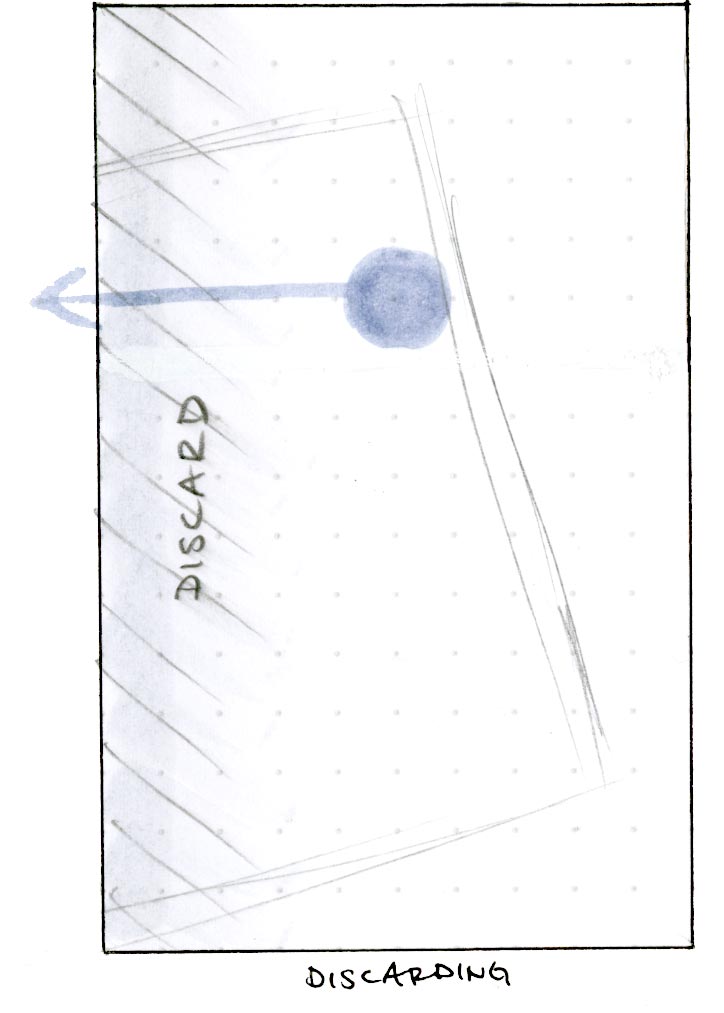 DISCARD
DISCARDING